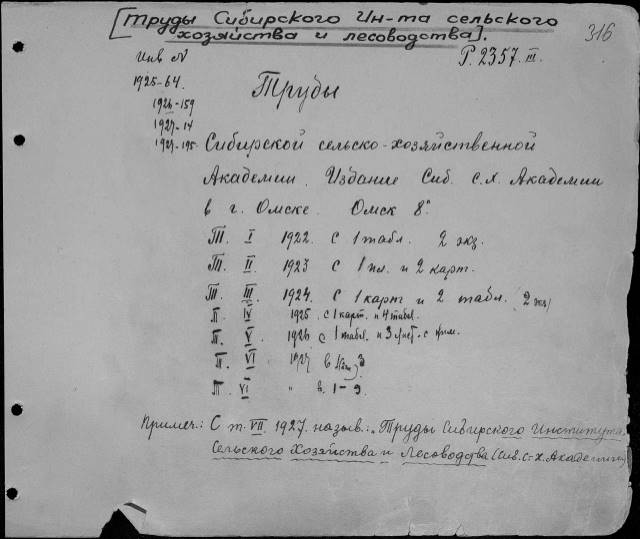 [Труды Сибирского Ин-та сельского
хозяйства и лесоводства].
316
Р. 2357. III.
Инв №
1925-64.
1926-159
1927-14
1927-195
Труды
Сибирской сельско-хозяйственной
Академии. Издание Сиб. с.х. Академии
в г. Омске. Омск 8°.
Т. I 1922. с 1 табл. 2 экз.
Т. II. 1923 с 1 пл. и 2 карт.
Т. III. 1924. с 1 карт и 2 табл. (2 экз)
Т. IV 1925. с 1 карт. и 4 табл.
Т. V. 1926 с 1 табл. и 3
Т. VI 1927 в
Т. VI " в. 1-3.
Примеч.: С т. VII 1927. назыв.: „Труды Сибирского Института
Сельского Хозяйства и Лесоводства (Сиб. С-Х. Академии)